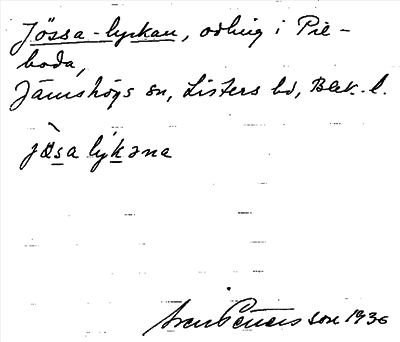 Jössa-lyckan, odling i Pie-
boda,
Jämshögs sn, Listers hd, Blek. l.
jòsa lykəna
Sven Petersson 1936